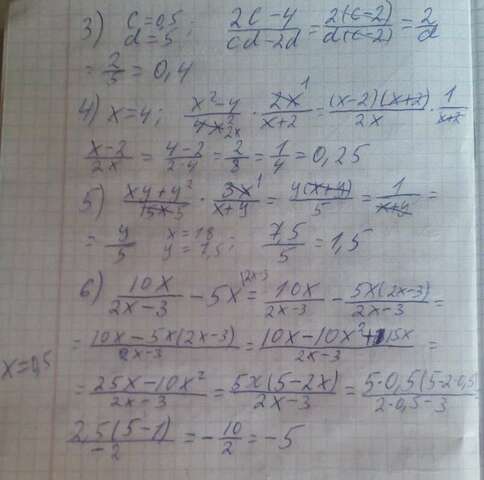 3) c=0,5; d=5; (2c-4)/(cd-2d) = 2(c-2)/d(c-2) = 2/d
= 2/5 = 0,4
4) x=4; (x²-4)/(4x² 2x) · 2x 1/(x+2) = (x-2)(x+2)/2x · 1/(x+2)
(x-2)/2x = (4-2)/(2·4) = 2/8 = 1/4 = 0,25
5) (xy+y²)/(15x 5) · 3x 1/(x+y) = y(x+y)/5 = 1/(x+y) =
= y/5 x=18 y=7,5; 7,5/5 = 1,5
6) 10x/(2x-3) - 5x (2x-3 = 10x/(2x-3) - 5x(2x-3)/(2x-3) =
= (10x-5x(2x-3))/(2x-3) = (10x-10x²+15x)/(2x-3) =
x=0,5
= (25x-10x²)/(2x-3) = 5x(5-2x)/(2x-3) = 5·0,5(5-2·0,5)/(2·0,5-3)
2,5(5-1)/(-2) = -10/2 = -5